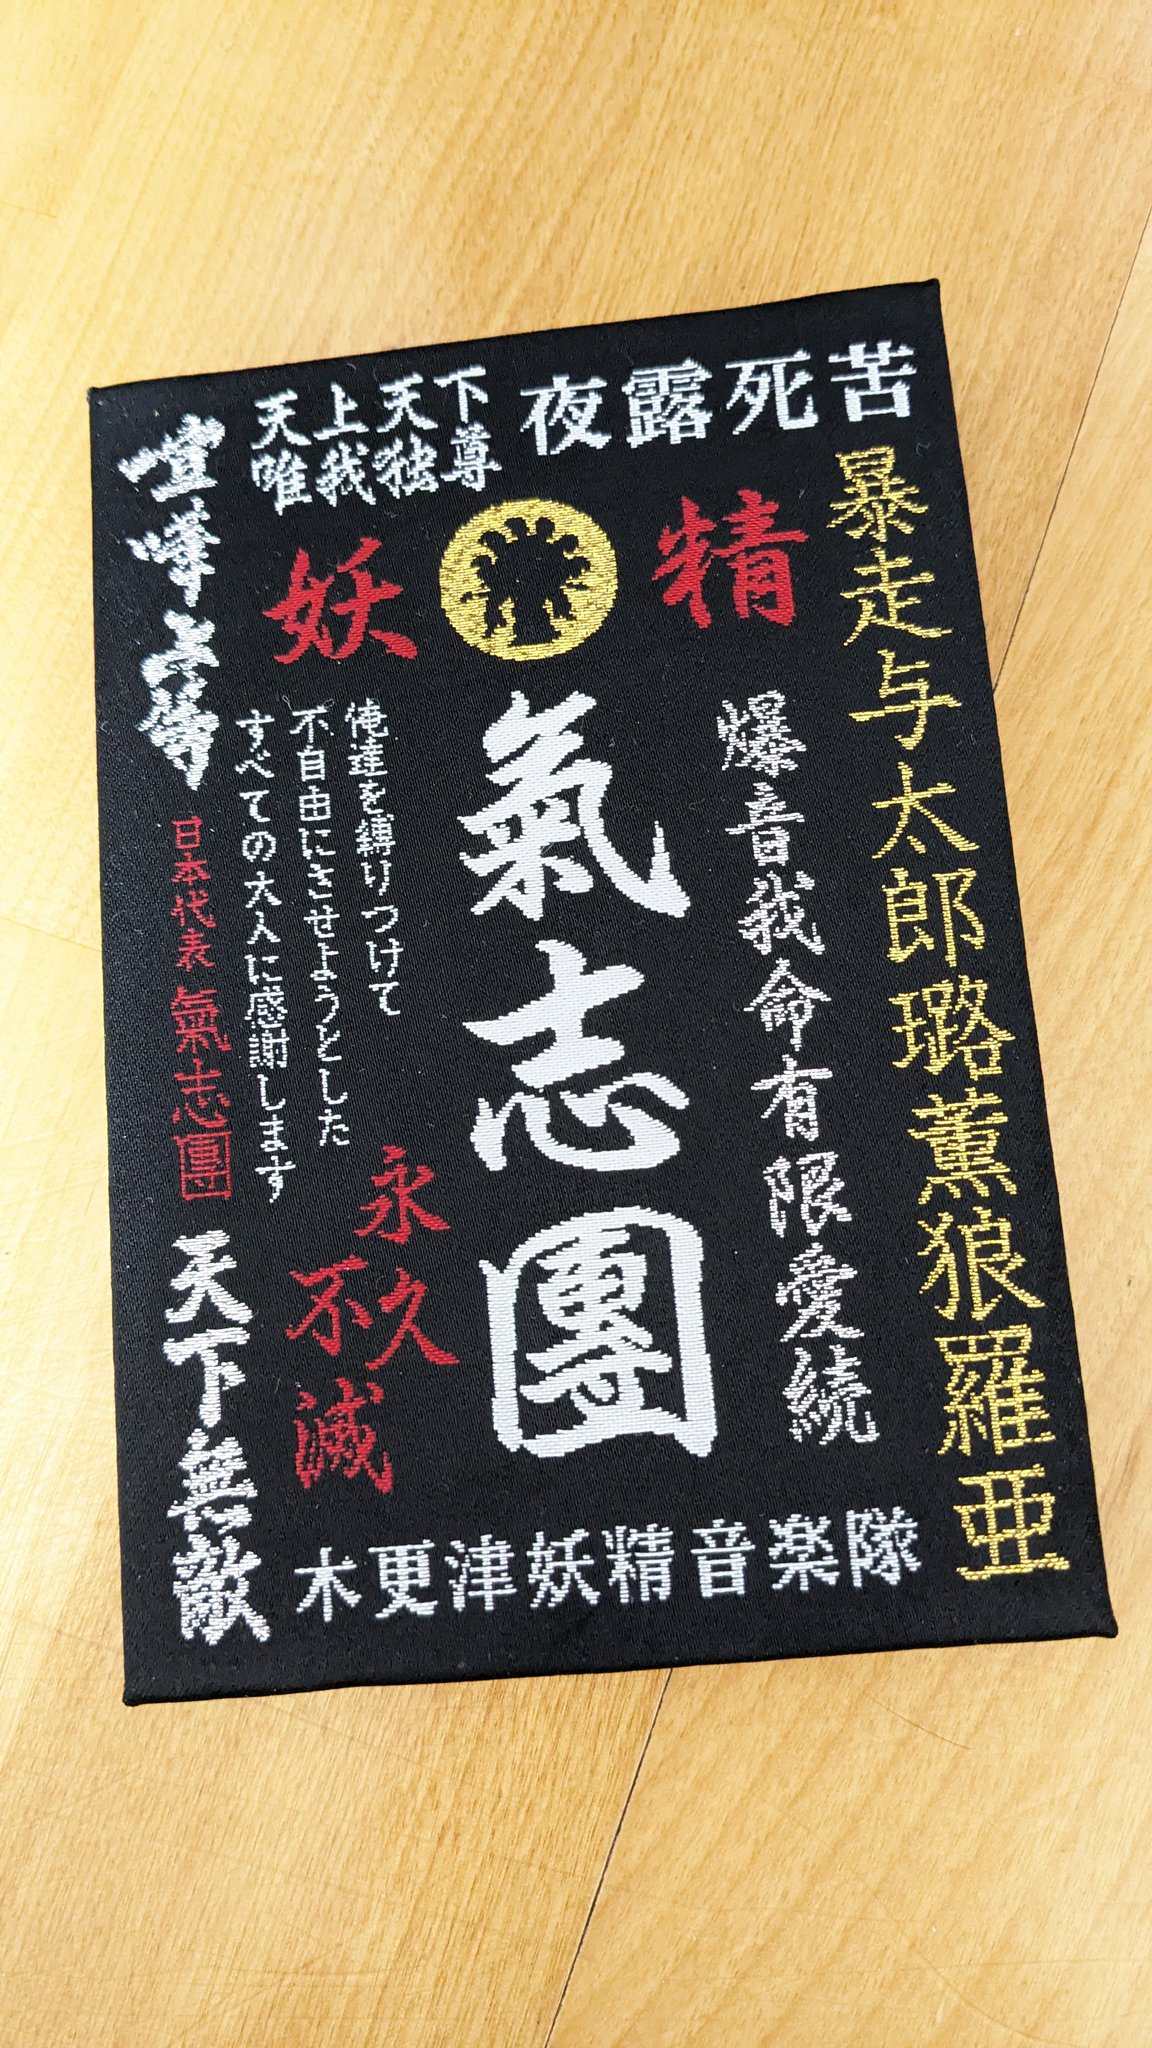 夜露死苦
天上天下
唯我独尊
喧嘩上等
妖精
暴走与太郎璐薫狼羅亜
爆音我命有限愛続
氣志團
俺達を縛りつけて
不自由にさせようとした
すべての大人に感謝します
永久不滅
日本代表 氣志團
天下無敵
木更津妖精音楽隊